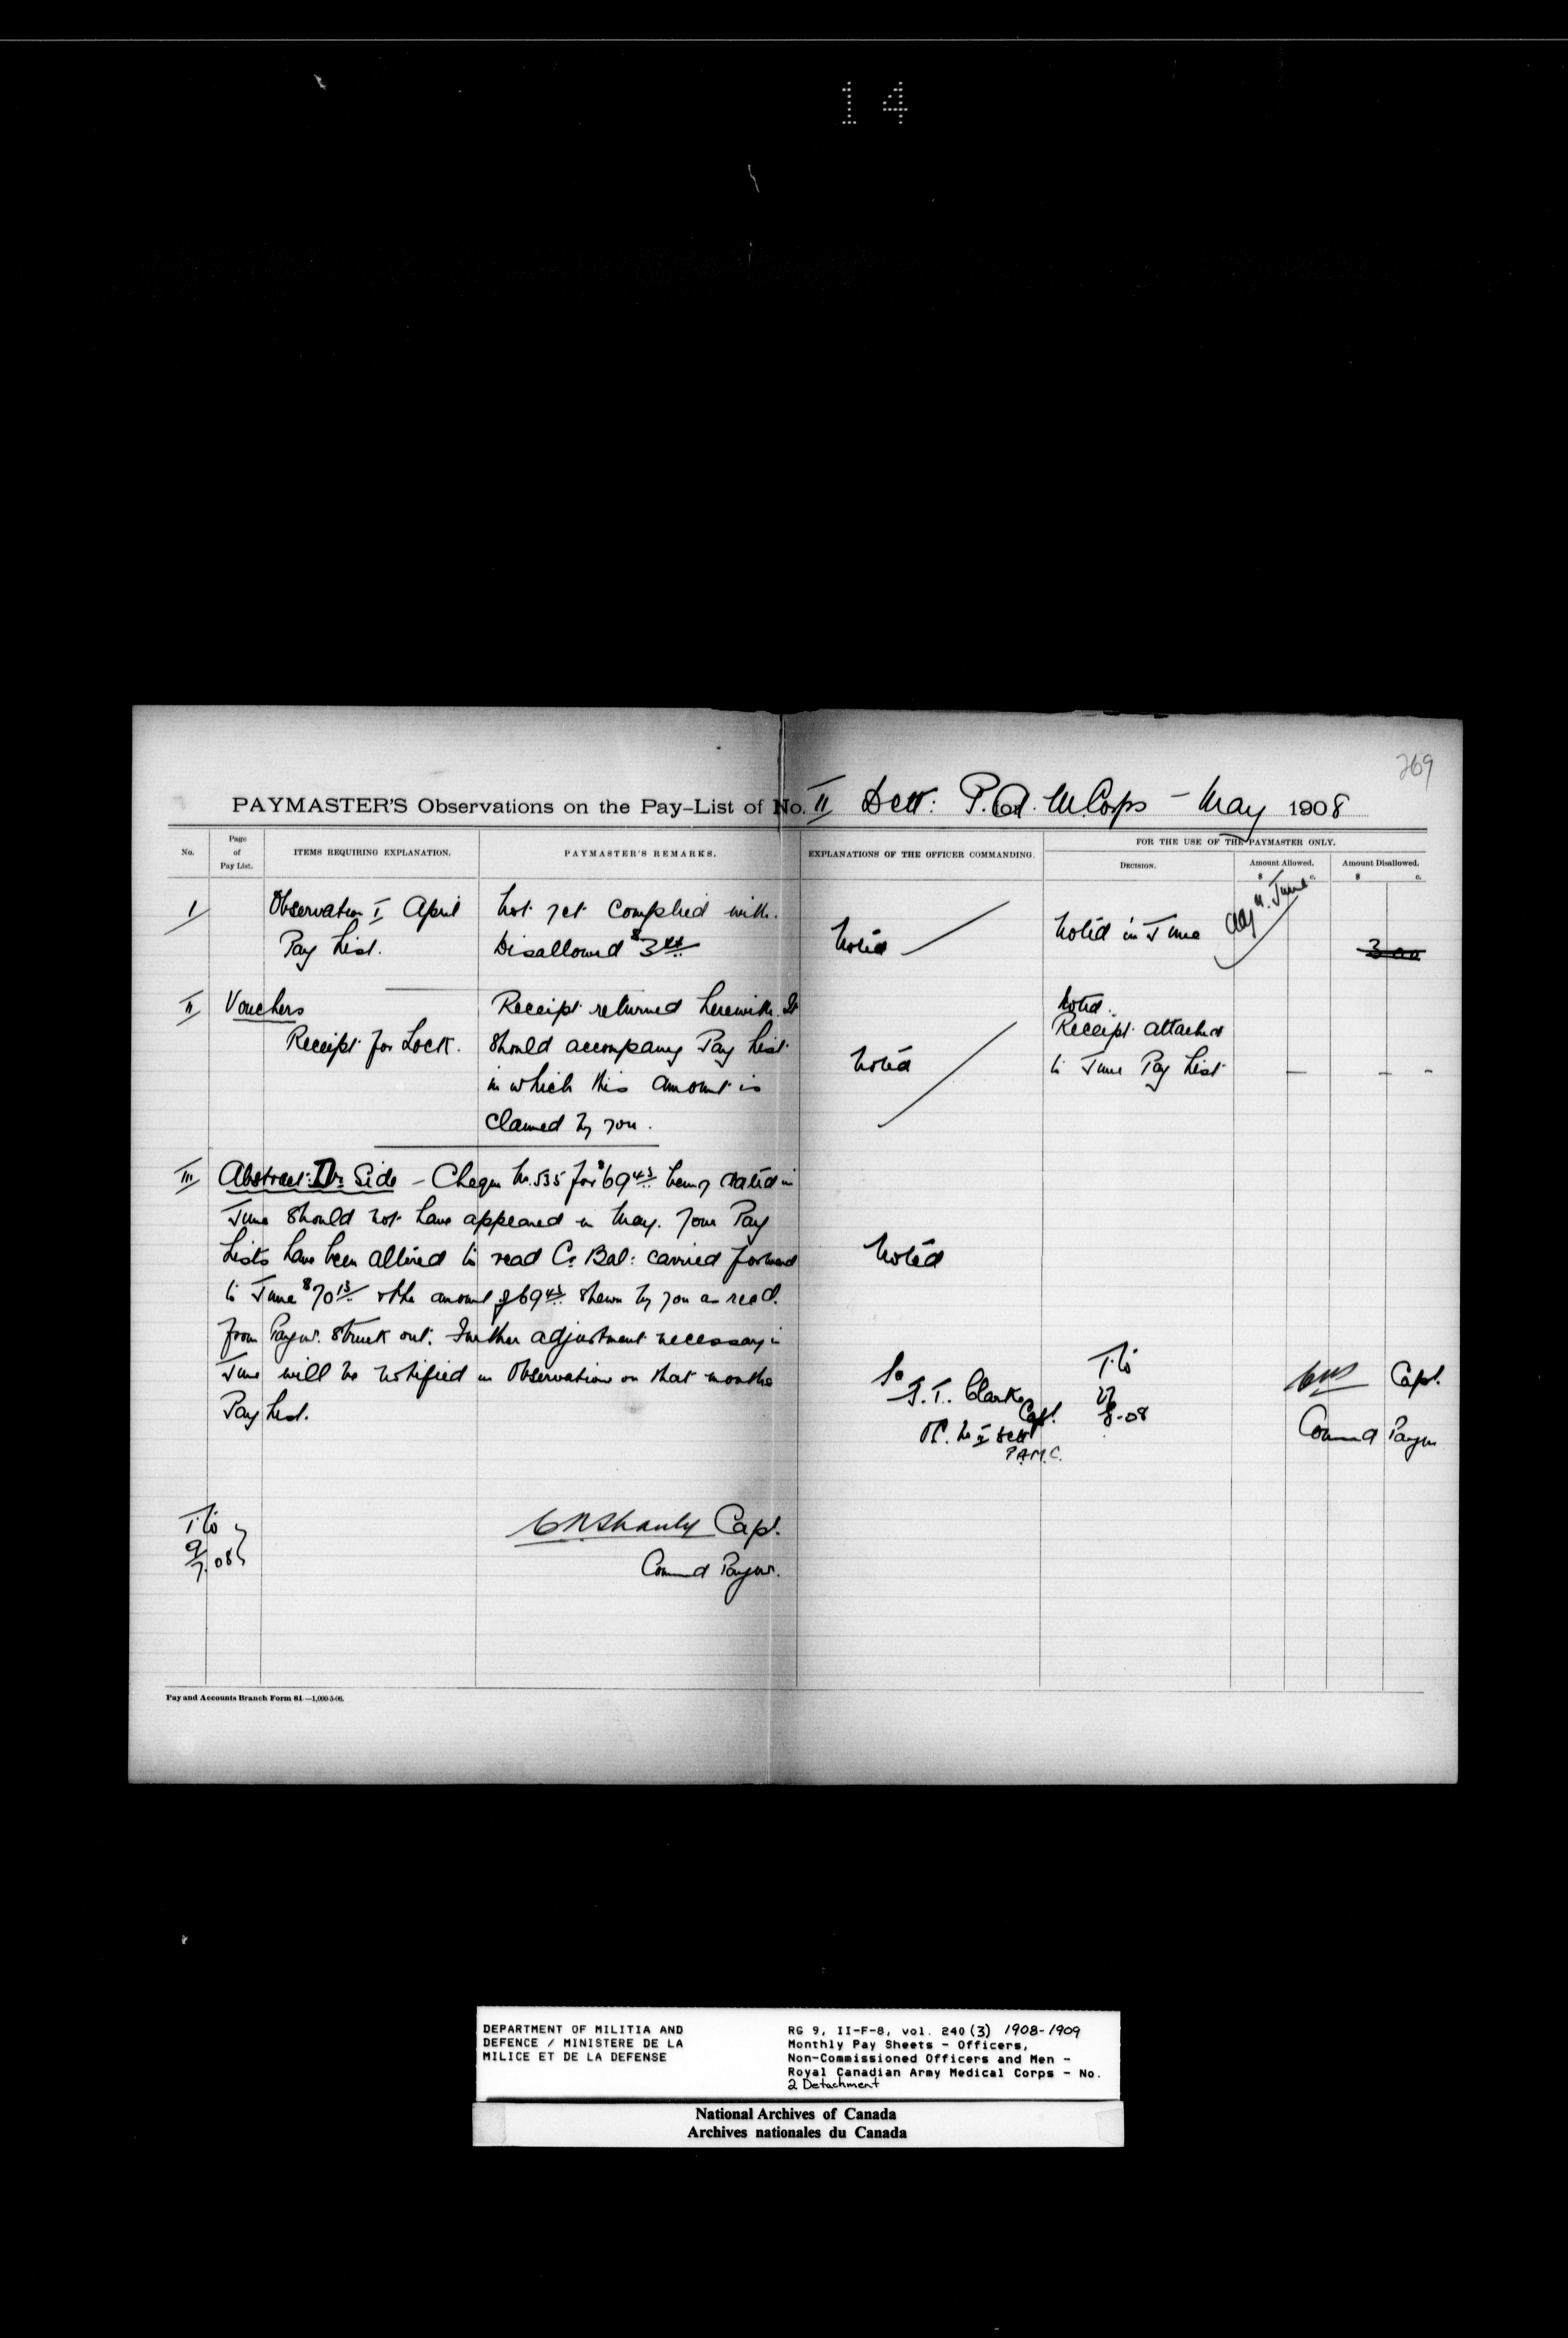 14
269
PAYMASTER'S Observations on the Pay-List of No. II Dett: P.A.M. Corps - May 1908
No.
Page of Pay List.
ITEMS REQUIRING EXPLANATION.
PAYMASTER'S REMARKS.
EXPLANATIONS OF THE OFFICER COMMANDING.
FOR THE USE OF THE PAYMASTER ONLY.
DECISION.
Amount Allowed.
Amount Disallowed.
$ c. $ c.
I
Observation I April
Pay List.
Not yet complied with.
Disallowed $3.00
Noted
Noted in June
Adj. June
3 00
II
Vouchers
Receipt for Lock.
Receipt returned herewith. It
should accompany Pay List
in which this amount is
claimed by you.
Noted
Noted.
Receipt attached
to June Pay List
III
Abstract: Dr. Side - Cheque No. 535 for $69.43 being dated in
June should not have appeared in May. Your Pay
Lists have been altered to read Cr. Bal: carried forward
to June $70.13 & the amount of 69.43 shewn by you as recd.
from Paymr. struck out. Further adjustment necessary in
June will be notified in Observation on that months
Pay List.
Noted
F. T. Clarke
Capt.
OC. No II Dett
P.A.M.C.
T.to
27
8-08
Capt.
Command Paymr
T.to
9
7.08
C N Shanly Capt.
Command Paymr.
Pay and Accounts Branch Form 81.—1,000-5-06.
DEPARTMENT OF MILITIA AND
DEFENCE / MINISTERE DE LA
MILICE ET DE LA DEFENSE
RG 9, II-F-8, vol. 240 (3) 1908-1909
Monthly Pay Sheets - Officers,
Non-Commissioned Officers and Men -
Royal Canadian Army Medical Corps - No.
2 Detachment
National Archives of Canada
Archives nationales du Canada